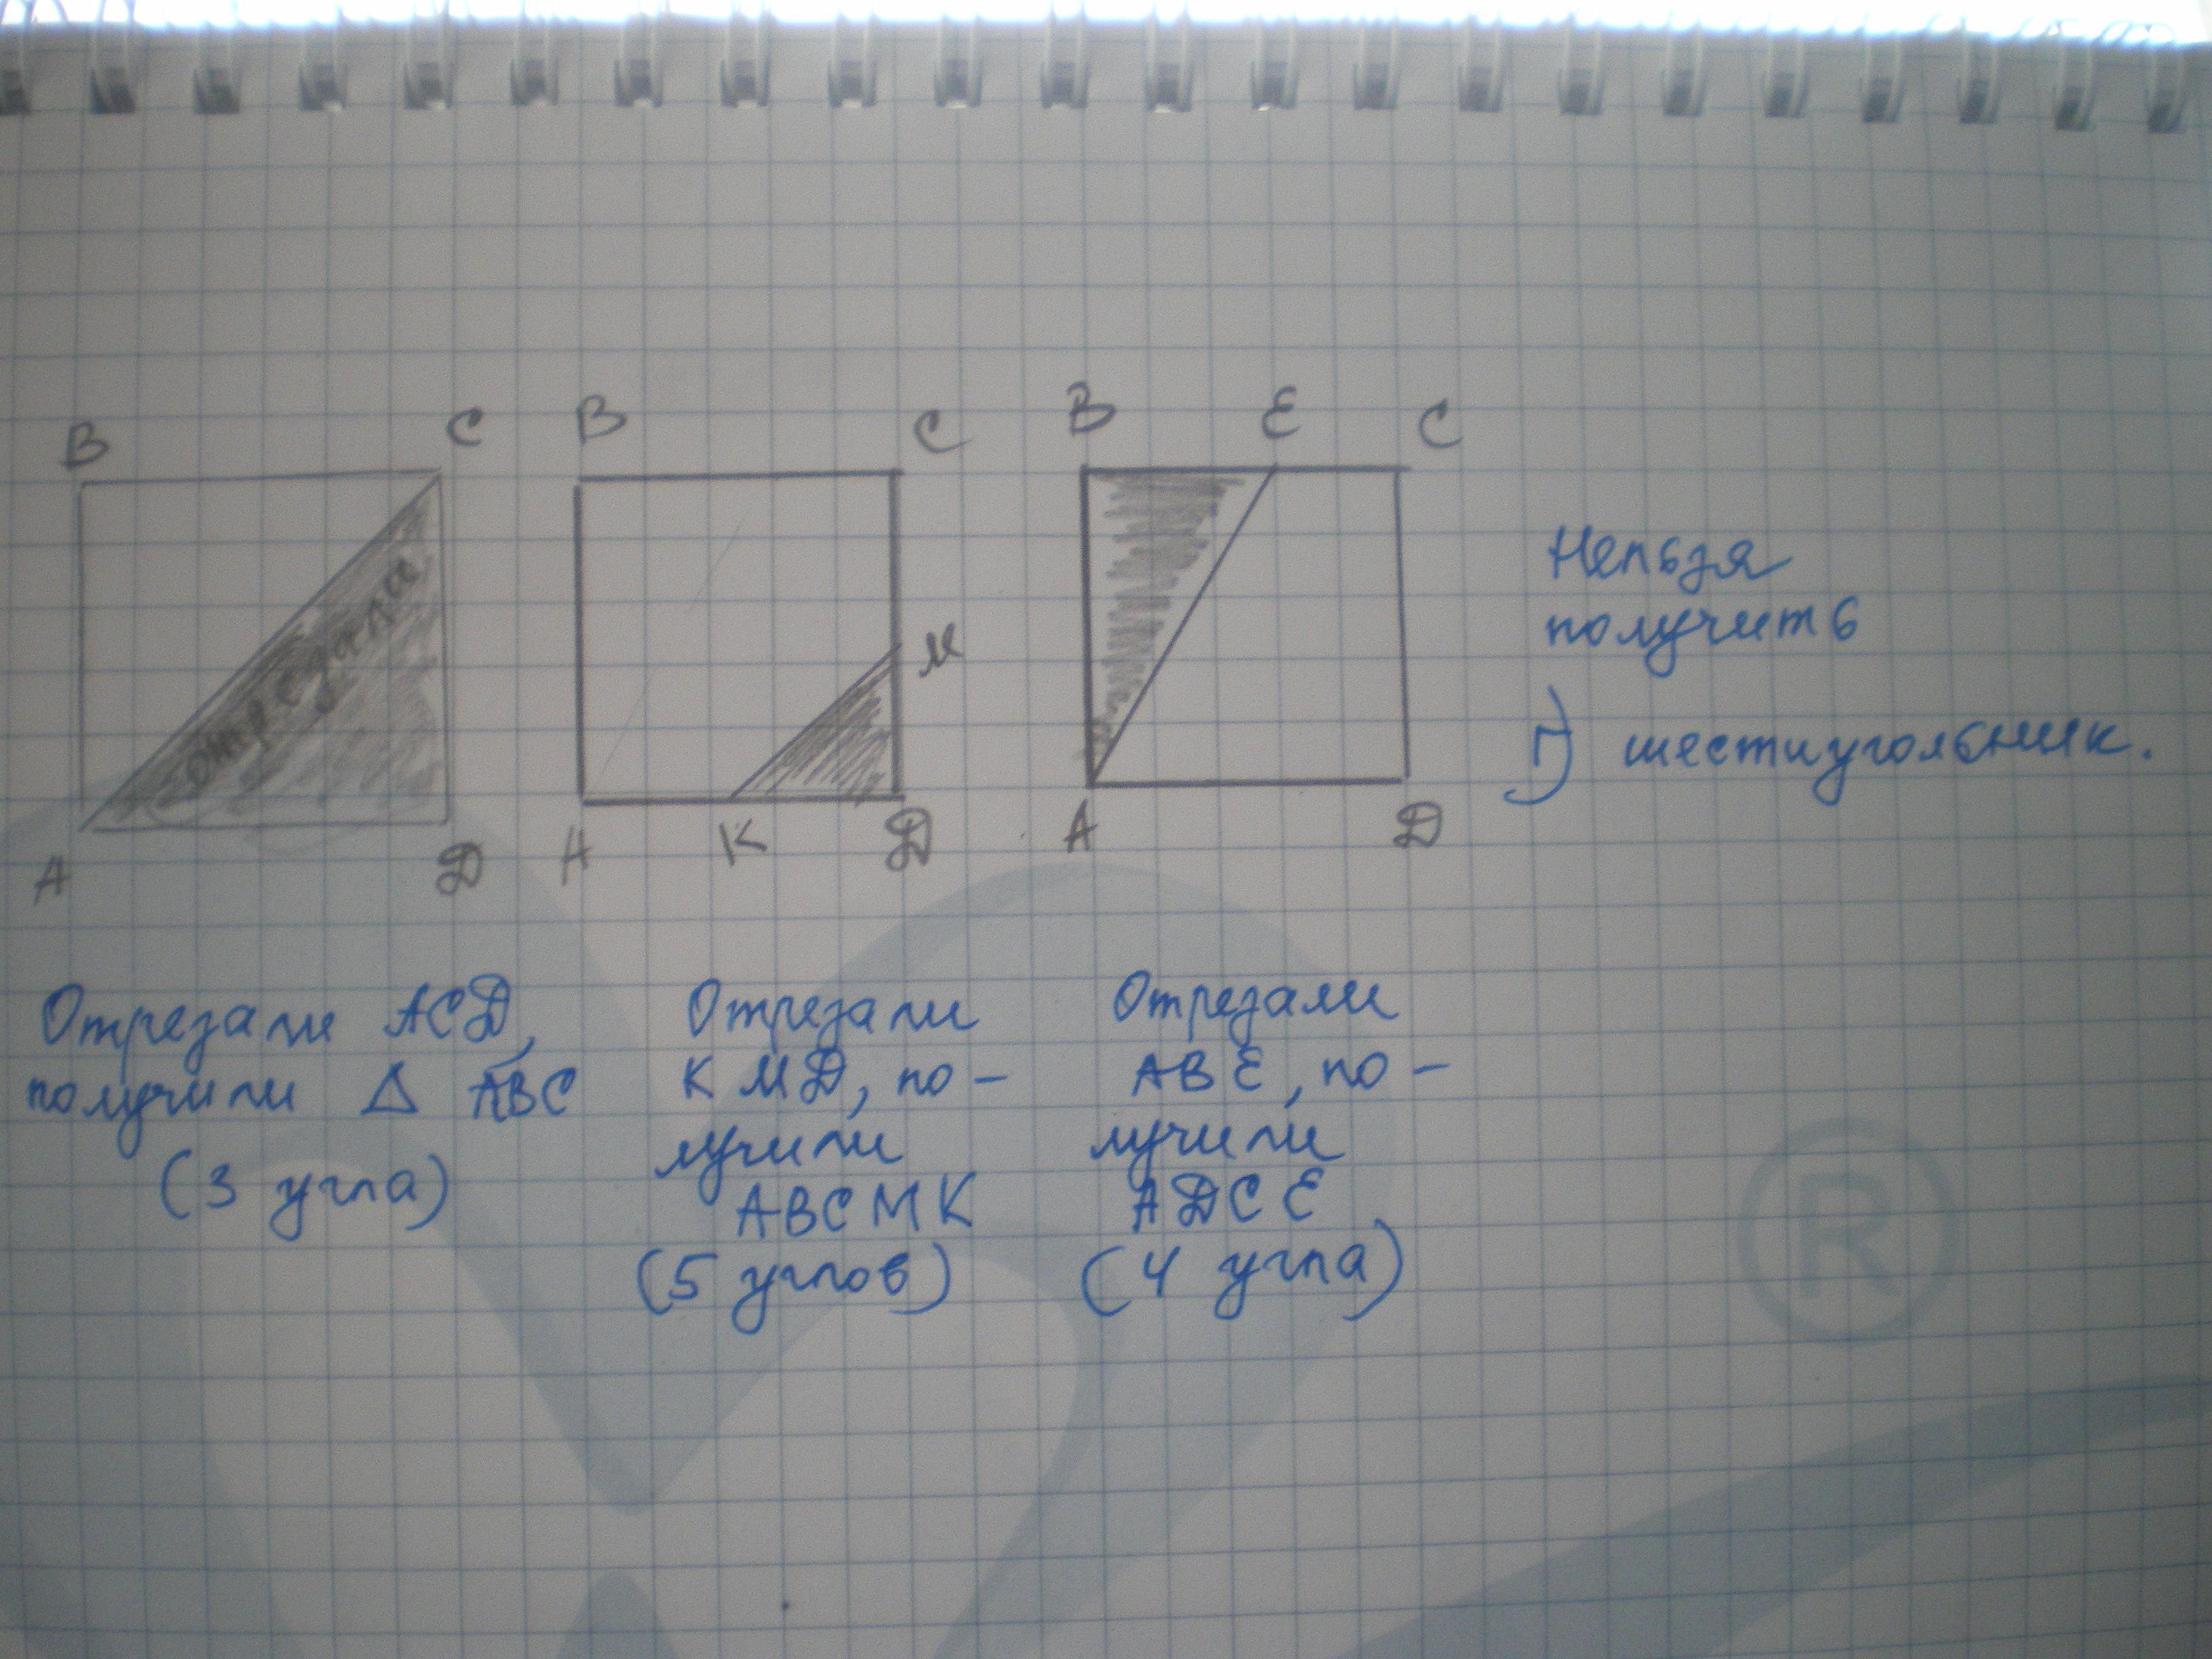 В С
А Д
отрезали
В С
М
А К Д
В Е С
А Д
Нельзя
получить
Г) шестиугольник.
Отрезали АСД,
получили Δ АВС
(3 угла)
Отрезали
КМД, по-
лучили
АВСМК
(5 углов)
Отрезали
АВЕ, по-
лучили
АДСЕ
(4 угла)
®